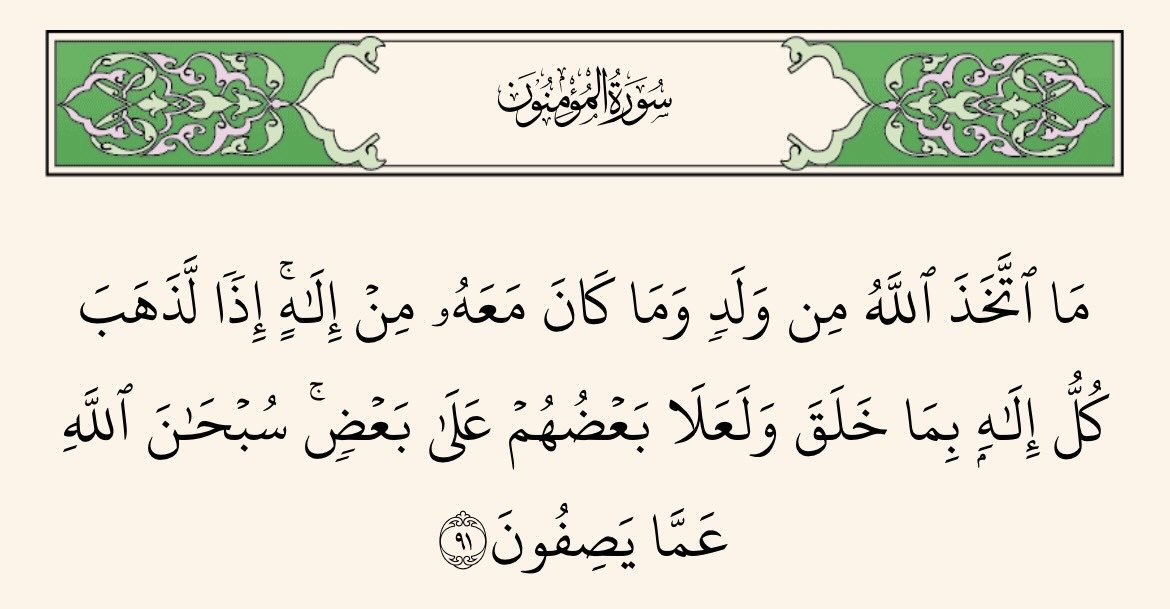 سُورَةُ الْمُؤْمِنُونَ
مَا ٱتَّخَذَ ٱللَّهُ مِن وَلَدٍ وَمَا كَانَ مَعَهُۥ مِنْ إِلَـٰهٍ ۚ إِذًا لَّذَهَبَ
كُلُّ إِلَـٰهٍۭ بِمَا خَلَقَ وَلَعَلَا بَعْضُهُمْ عَلَىٰ بَعْضٍ ۚ سُبْحَـٰنَ ٱللَّهِ
عَمَّا يَصِفُونَ ٩١